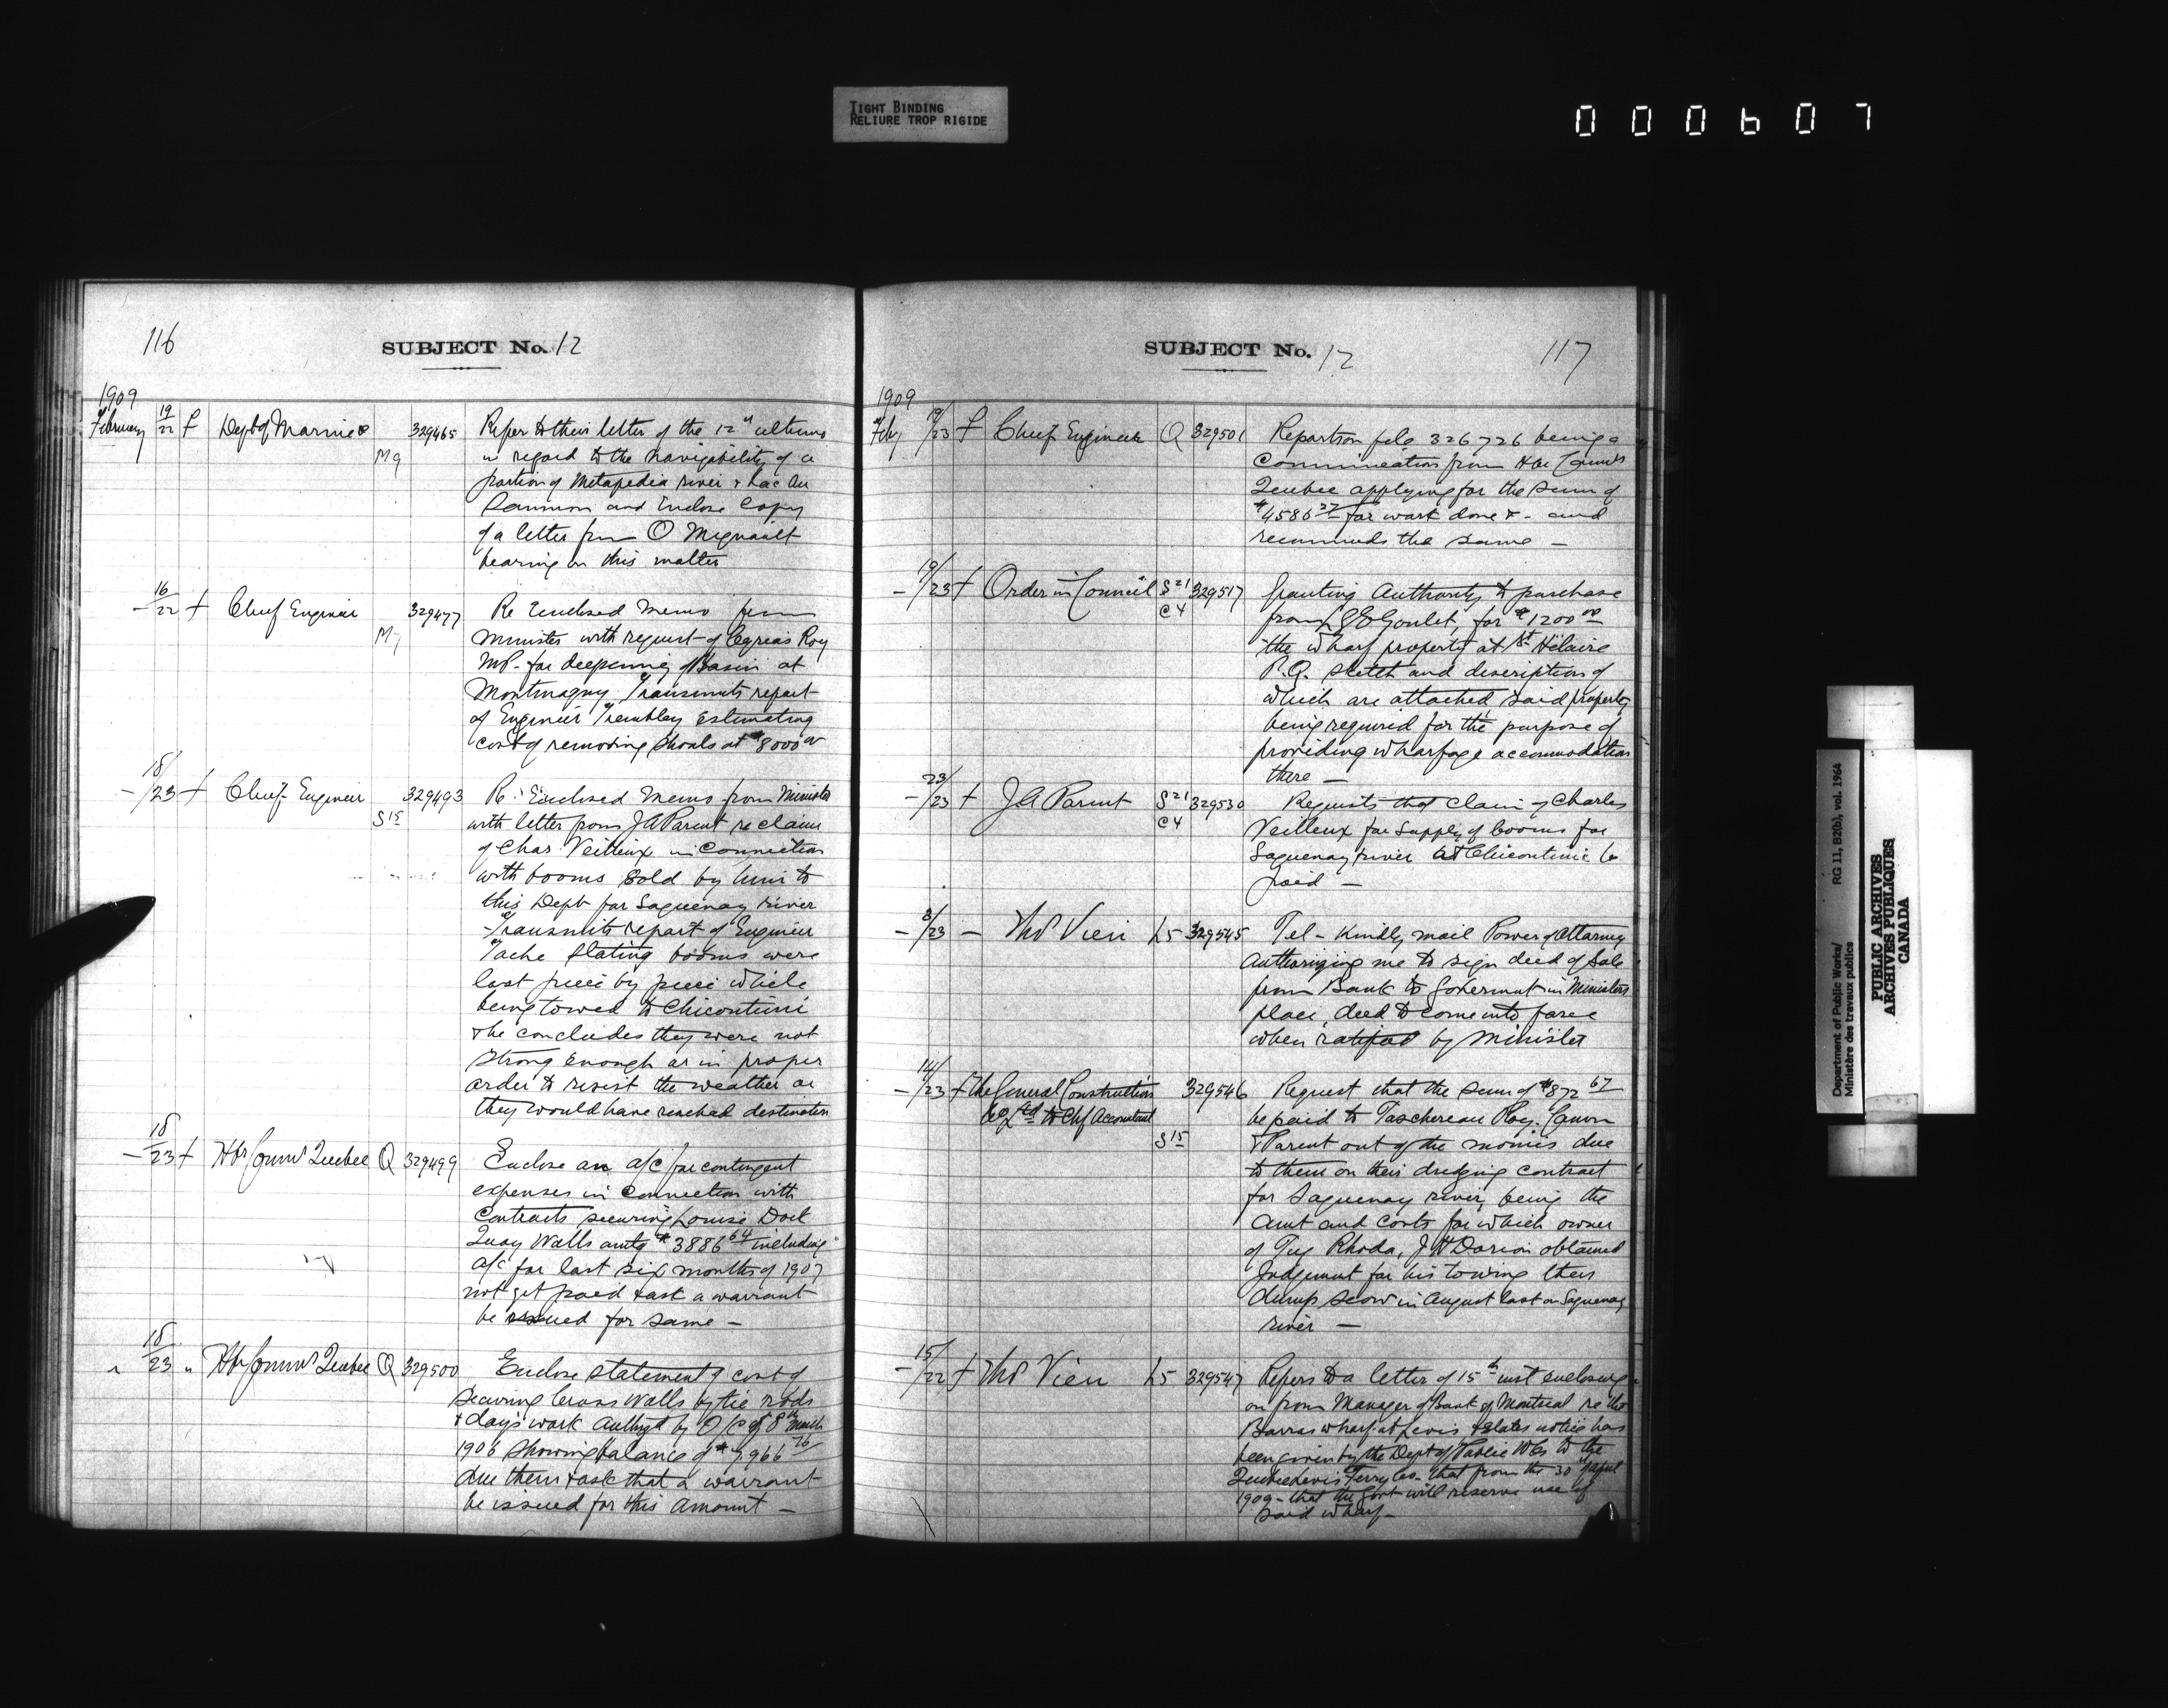 TIGHT BINDING
RELIURE TROP RIGIDE
000607
116
SUBJECT No. 12
1909
February 19/22 f Dept of Marine & M9 329465 Refer to their letter of the 12" ultimo
in regard to the navigability of a
portion of Metapedia river & Lac Au
Saumon and Enclose Copy
of a letter from O Mignault
bearing on this matter
- 16/22 f Chief Engineer M7 329477 Re Enclosed Memo from
Minister with request of Cyreas Roy
MP- for deepening of Basin at
Montmagny Transmits report
of Engineer Trembley Estimating
cost of removing shoals at $8000 00
- 18/23 f Chief Engineer S15 329493 Re: Enclosed Memo from Minister
with letter from JA Parent re claim
of Chas. Veilleux in Connection
with booms Sold by him to
this Dept for Saguenay river
- Transmits report of Engineer
Tache Stating booms were
lost piece by piece while
being towed to Chicoutimi
& he concludes they were not
strong enough or in proper
order to resist the weather or
they would have reached destination
- 18/23 f Hbr Commrs Quebec Q 329499 Enclose an a/c for contingent
expenses in Connection with
Contracts securing Louise Dock
Quay Walls amtg $3886 64 including
a/c for last six months of 1907
not yet paid & ask a warrant
be issued for same -
" 18/23 " Hbr Commrs Quebec Q 329500 Enclose statement of cost of
Securing Cross Walls by tie rods
& day's work Authzd by O/C of 8th March
1906 Showing balance of $7,966 76
due them & ask that a warrant
be issued for this Amount -
SUBJECT No. 12
117
1909
Feby 19/23 f Chief Engineer Q 329501 Reports on file 326726 being a
Communication from Hbr Commrs
Quebec applying for the sum of
$4586 27 for work done &- and
recommends the same -
- 19/23 f Order in Council S21 C4 329517 Granting Authority to purchase
from L G E Goulet, for $1200 00
the wharf property at St Hilaire
P.Q. sketch and description of
which are attached, said property
being required for the purpose of
providing wharfage accommodation
there -
- 23/23 f JA Parent S21 C4 329530 Requests that claim of Charles
Veilleux for Supply of booms for
Saguenay river at Chicoutimi be
paid -
- 8/23 - Thos Vien L5 329545 Tel - Kindly mail Power of Attorney
Authorizing me to sign deed of Sale
from Bank to Goverment in Ministers
place, deed to come into force
when ratified by Minister
- 14/23 f The General Construction
Co Ltd to Chf Accountant
S15 329546 Request that the sum of $872 67
be paid to Taschereau Roy. Canon
& Parent out of the monies due
to them on their dredging contract
for Saguenay river, being the
amt and costs for which owner
of Tug Rhoda, J H Dorion obtained
Judgement for his towing their
dump scow in August last on Saguenay
river -
- 15/22 f Thos Vien L5 329547 Refers to a letter of 15th inst enclosing
on from Manager of Bank of Montreal re the
Barras wharf at Levis & states notice has
been given by the Dept of Public Wks to the
Quebec Levis Ferry Co- that from the 30" April
1909- that the Govt will reserve use of
said wharf-
Department of Public Works/
Ministère des travaux publics
RG 11, B2(b), vol. 1964
PUBLIC ARCHIVES
ARCHIVES PUBLIQUES
CANADA